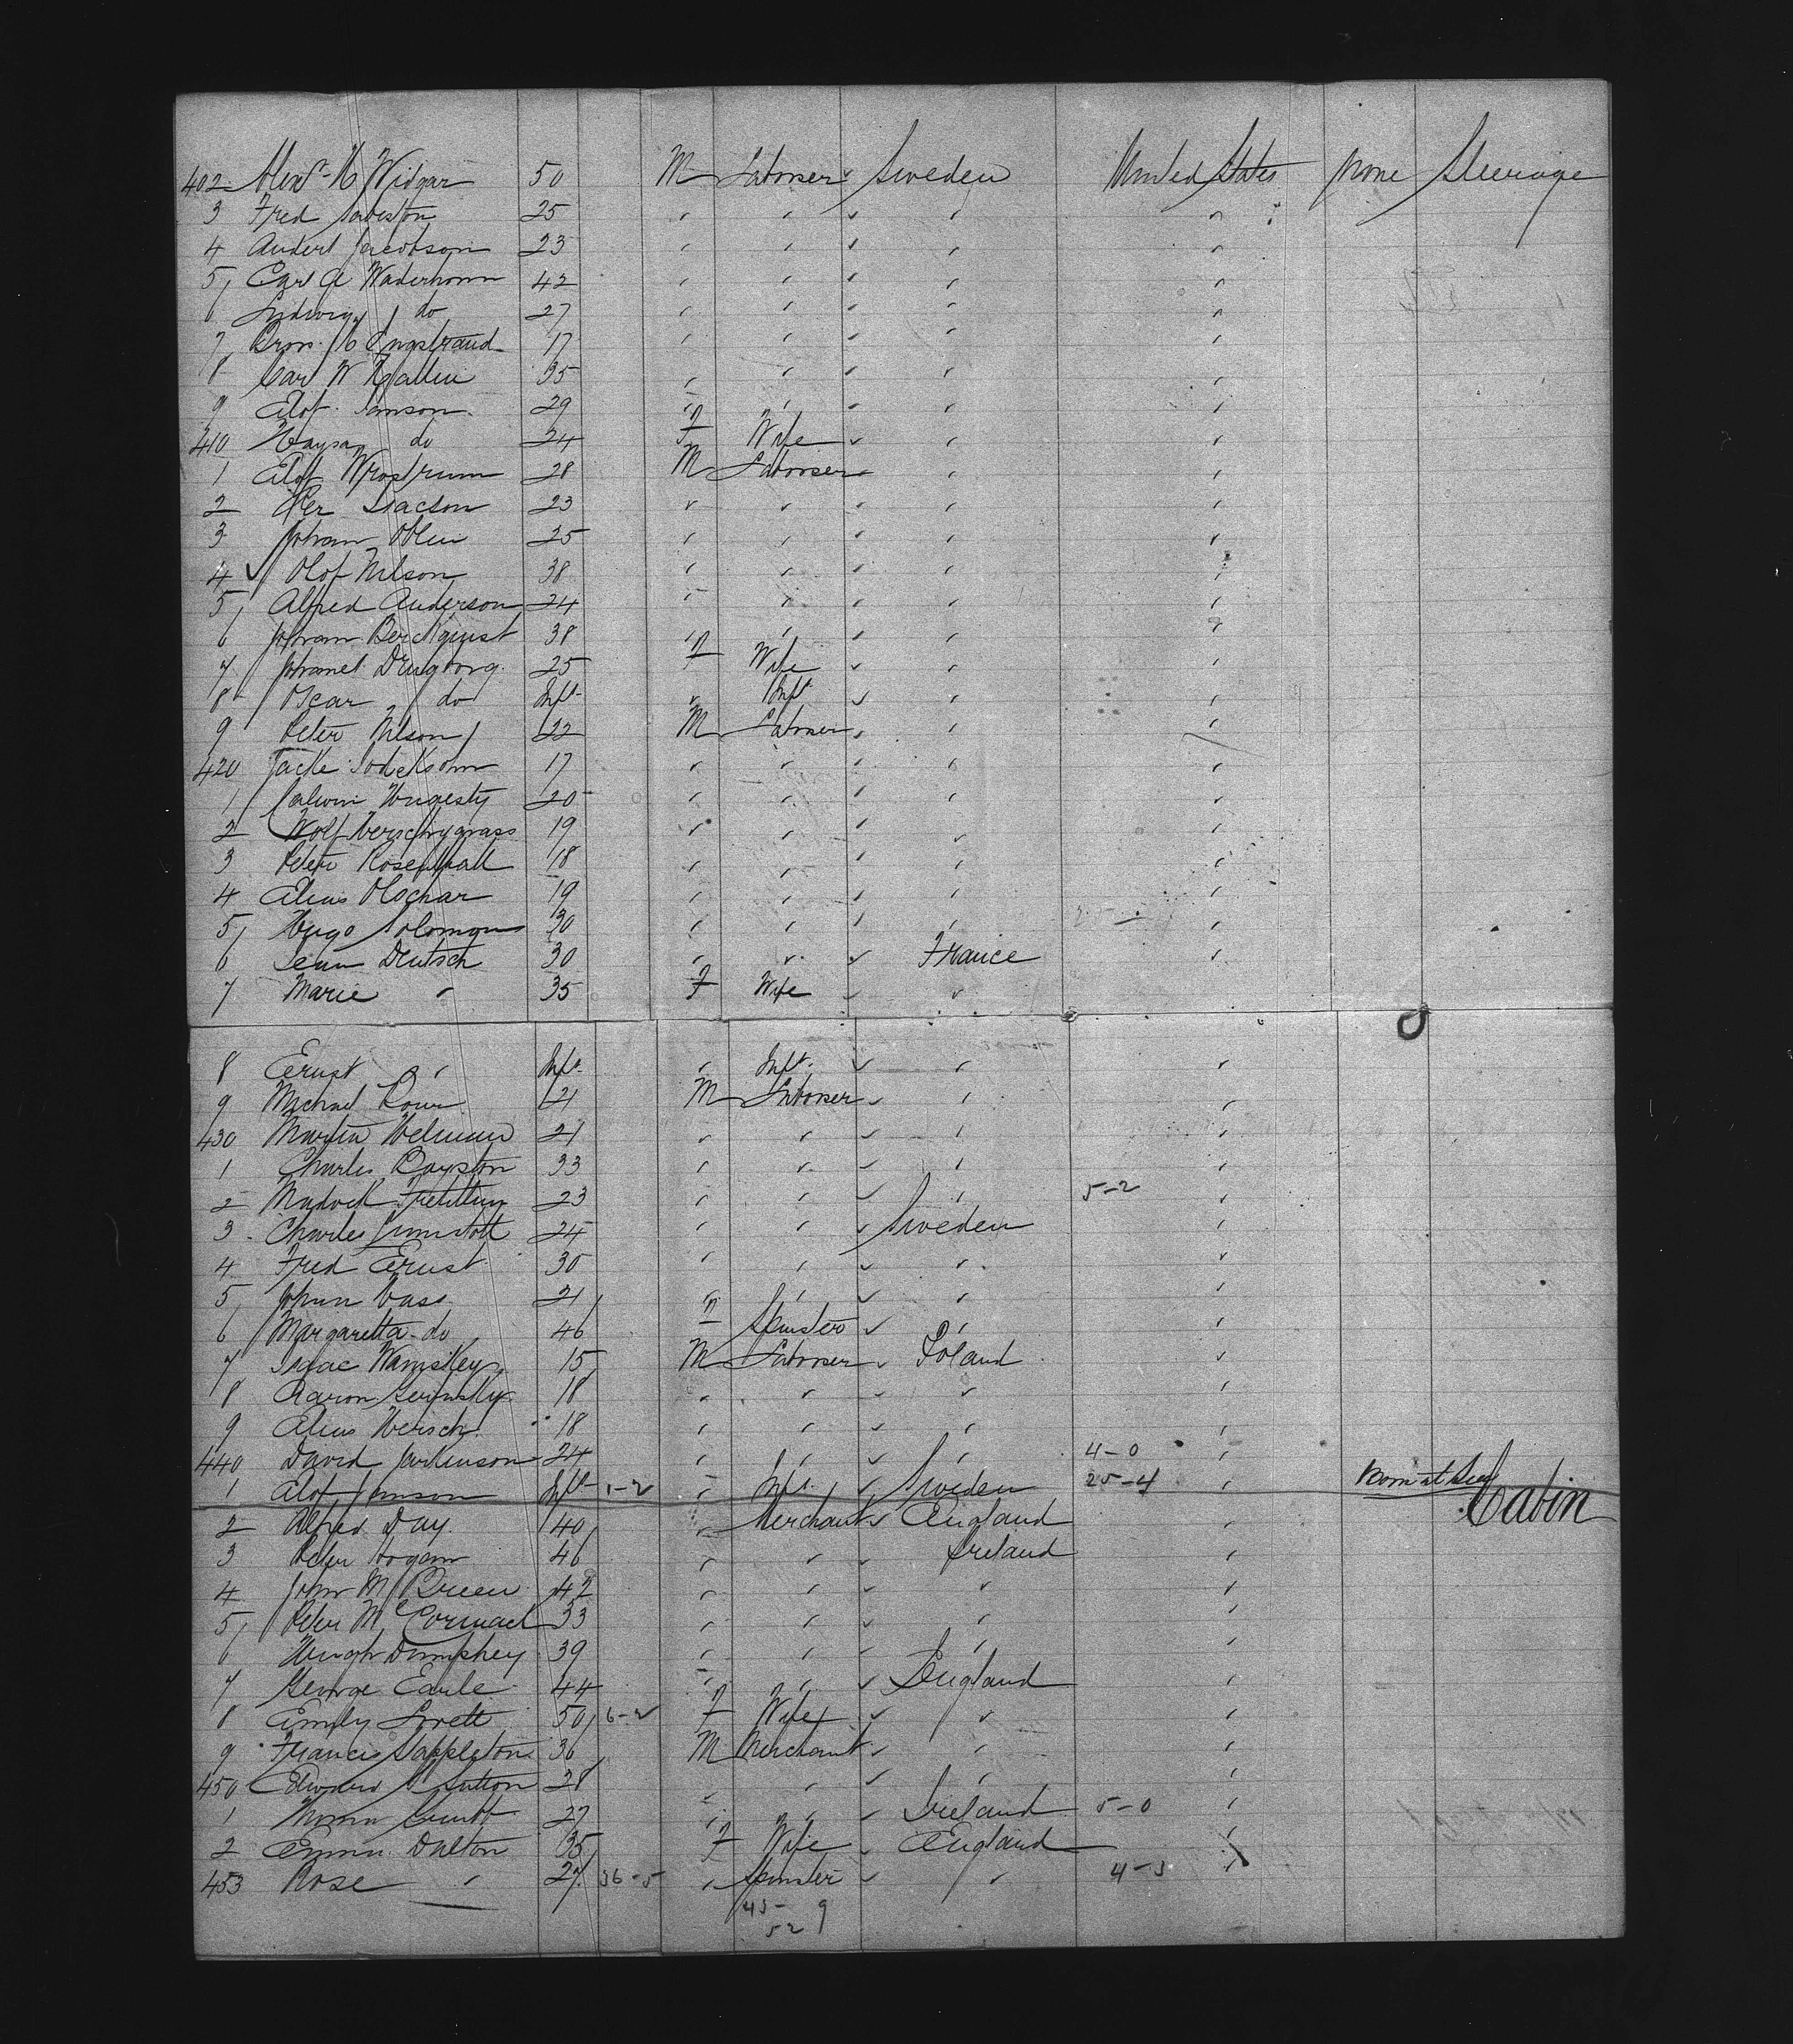 402 Alexr H Widgar 50 M Laborer Sweden United States None Steerage
3 Fred 25 " " " "
4 Andert Jacobson 23 " " " "
5 Carl A Waderhorn 42 " " " "
6 Ludwig do 27 " " " "
7 H Engstrand 17 " " " "
8 Carl W Hallin 35 " " " "
9 Olof Janson 29 " " " "
410 do 24 F Wife " "
1 Olof 28 M Laborer " "
2 Per Isacson 23 " " " "
3 Johan Ohlen 25 " " " "
4 Olof Nilson 38 " " " "
5 Alfred Anderson 24 " " " "
6 Johan Berckquist 38 " " " "
7 25 F Wife " "
8 Oscar do Inft " Inft " "
9 Peter Nilson 22 M Laborer " "
420 17 " " " "
1 20 " " " "
2 Wolf 19 " " " "
3 Peter Rosenthall 18 " " " "
4 19 " " " "
5 Hugo Solomon 30 " " " "
6 Jean Deutsch 30 " " France "
7 Marie " 35 F Wife " "
8 Ernst " Inft " Inft " "
9 Michael 21 M Laborer " "
430 Martin 21 " " " "
1 Charles Royston 33 " " " "
2 23 " " " 5-2 "
3 Charles 24 " " Sweden "
4 Fred Ernst 30 " " " "
5 Johan 21 " " " "
6 Margaretta do 46 F Spinster " "
7 Isaac Wamskey 15 M Laborer Poland "
8 Aaron 18 " " " "
9 Hersch 18 " " " "
440 David Parkinson 24 " " " 4-0 "
1 Olof Janson Inft 1-2 " Inft Sweden 25-4 " Born at Sea
2 Alfred Day 40 " Merchant England " Cabin
3 Peter Hogan 46 " " Ireland "
4 John M Breen 42 " " " "
5 Peter McCormack 33 " " " "
6 Hugh Dumphey 39 " " " "
7 George Earle 44 " " England "
8 Emily 50 6-2 F Wife " "
9 Francis Sappleton 36 M Merchant " "
450 Edward Sutton 28 " " " "
1 27 " " Ireland 5-0 "
2 Emma Dalton 35 F Wife England "
453 Rose " 27 36-5 " Spinster " 4-3 "
43- 9
52